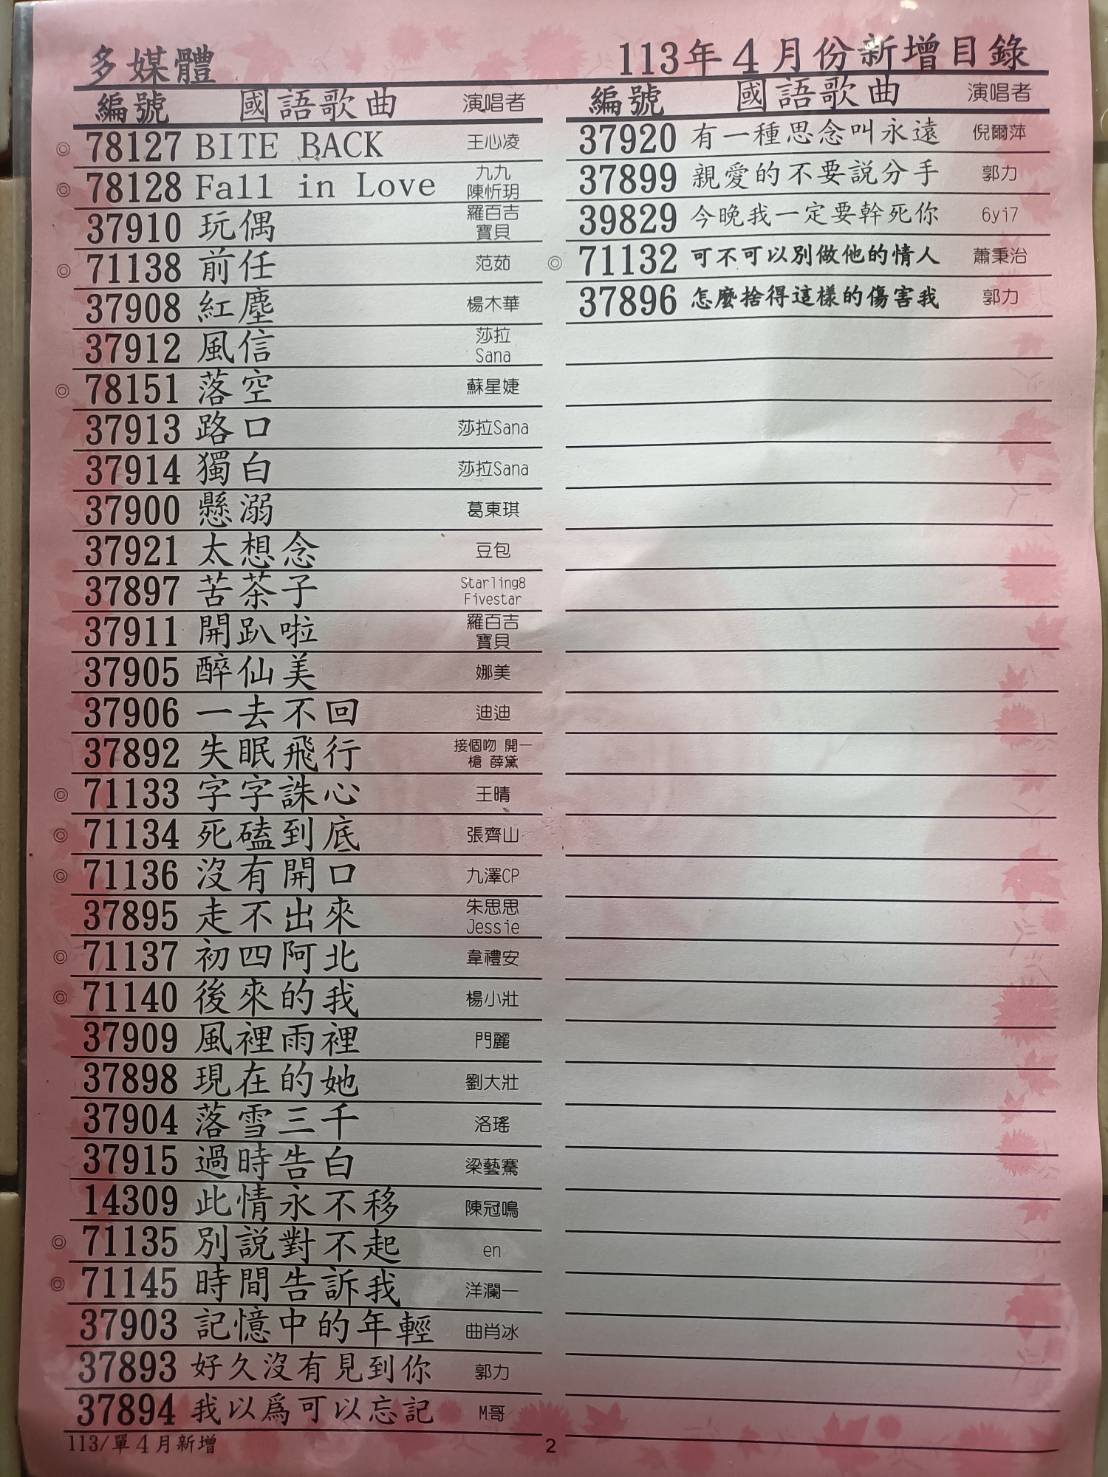 多媒體
113年4月份新增目錄
編號 國語歌曲 演唱者
◎ 78127 BITE BACK 王心凌
◎ 78128 Fall in Love 九九 陳忻玥
37910 玩偶 羅百吉 寶貝
◎ 71138 前任 范茹
37908 紅塵 楊木華
37912 風信 莎拉 Sana
◎ 78151 落空 蘇星婕
37913 路口 莎拉Sana
37914 獨白 莎拉Sana
37900 懸溺 葛東琪
37921 太想念 豆包
37897 苦茶子 Starling8 Fivestar
37911 開趴啦 羅百吉 寶貝
37905 醉仙美 娜美
37906 一去不回 迪迪
37892 失眠飛行 接個吻 開一槍 薛黛
◎ 71133 字字誅心 王晴
◎ 71134 死磕到底 張齊山
◎ 71136 沒有開口 九澤CP
37895 走不出來 朱思思 Jessie
◎ 71137 初四阿北 韋禮安
◎ 71140 後來的我 楊小壯
37909 風裡雨裡 門麗
37898 現在的她 劉大壯
37904 落雪三千 洛瑤
37915 過時告白 梁藝騫
14309 此情永不移 陳冠鳴
◎ 71135 別說對不起 en
◎ 71145 時間告訴我 洋瀾一
37903 記憶中的年輕 曲肖冰
37893 好久沒有見到你 郭力
37894 我以為可以忘記 M哥
113/單4月新增
編號 國語歌曲 演唱者
37920 有一種思念叫永遠 倪爾萍
37899 親愛的不要說分手 郭力
39829 今晚我一定要幹死你 6yi7
◎ 71132 可不可以別做他的情人 蕭秉治
37896 怎麼捨得這樣的傷害我 郭力
2